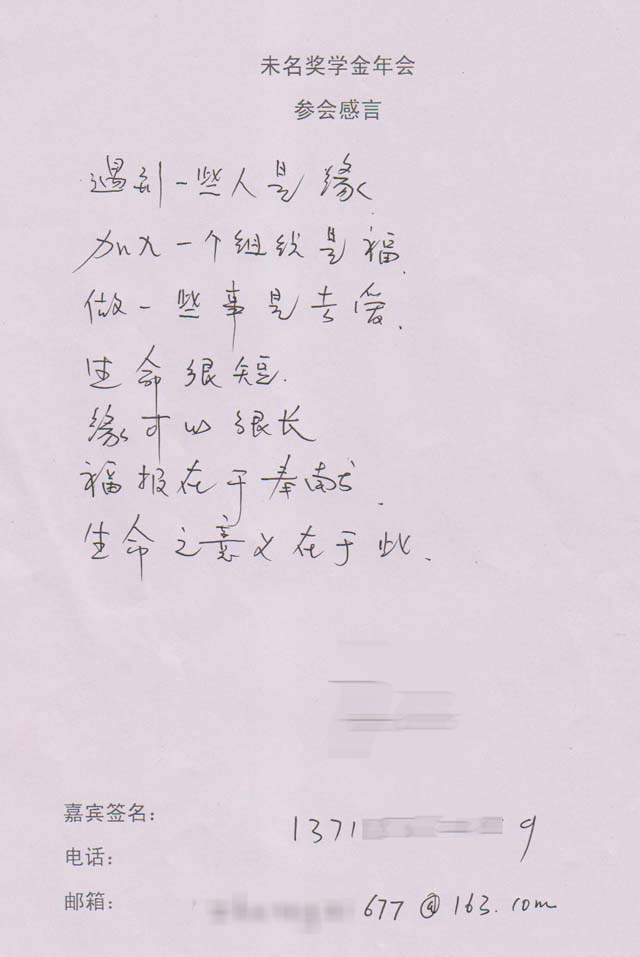 未名奖学金年会
参会感言
遇到一些人是缘
加入一个组织是福.
做一些事是去爱.
生命很短.
缘可以很长
福报在于奉献.
生命之意义在于此.
嘉宾签名:
1371 9
电话:
邮箱: 677@163.com